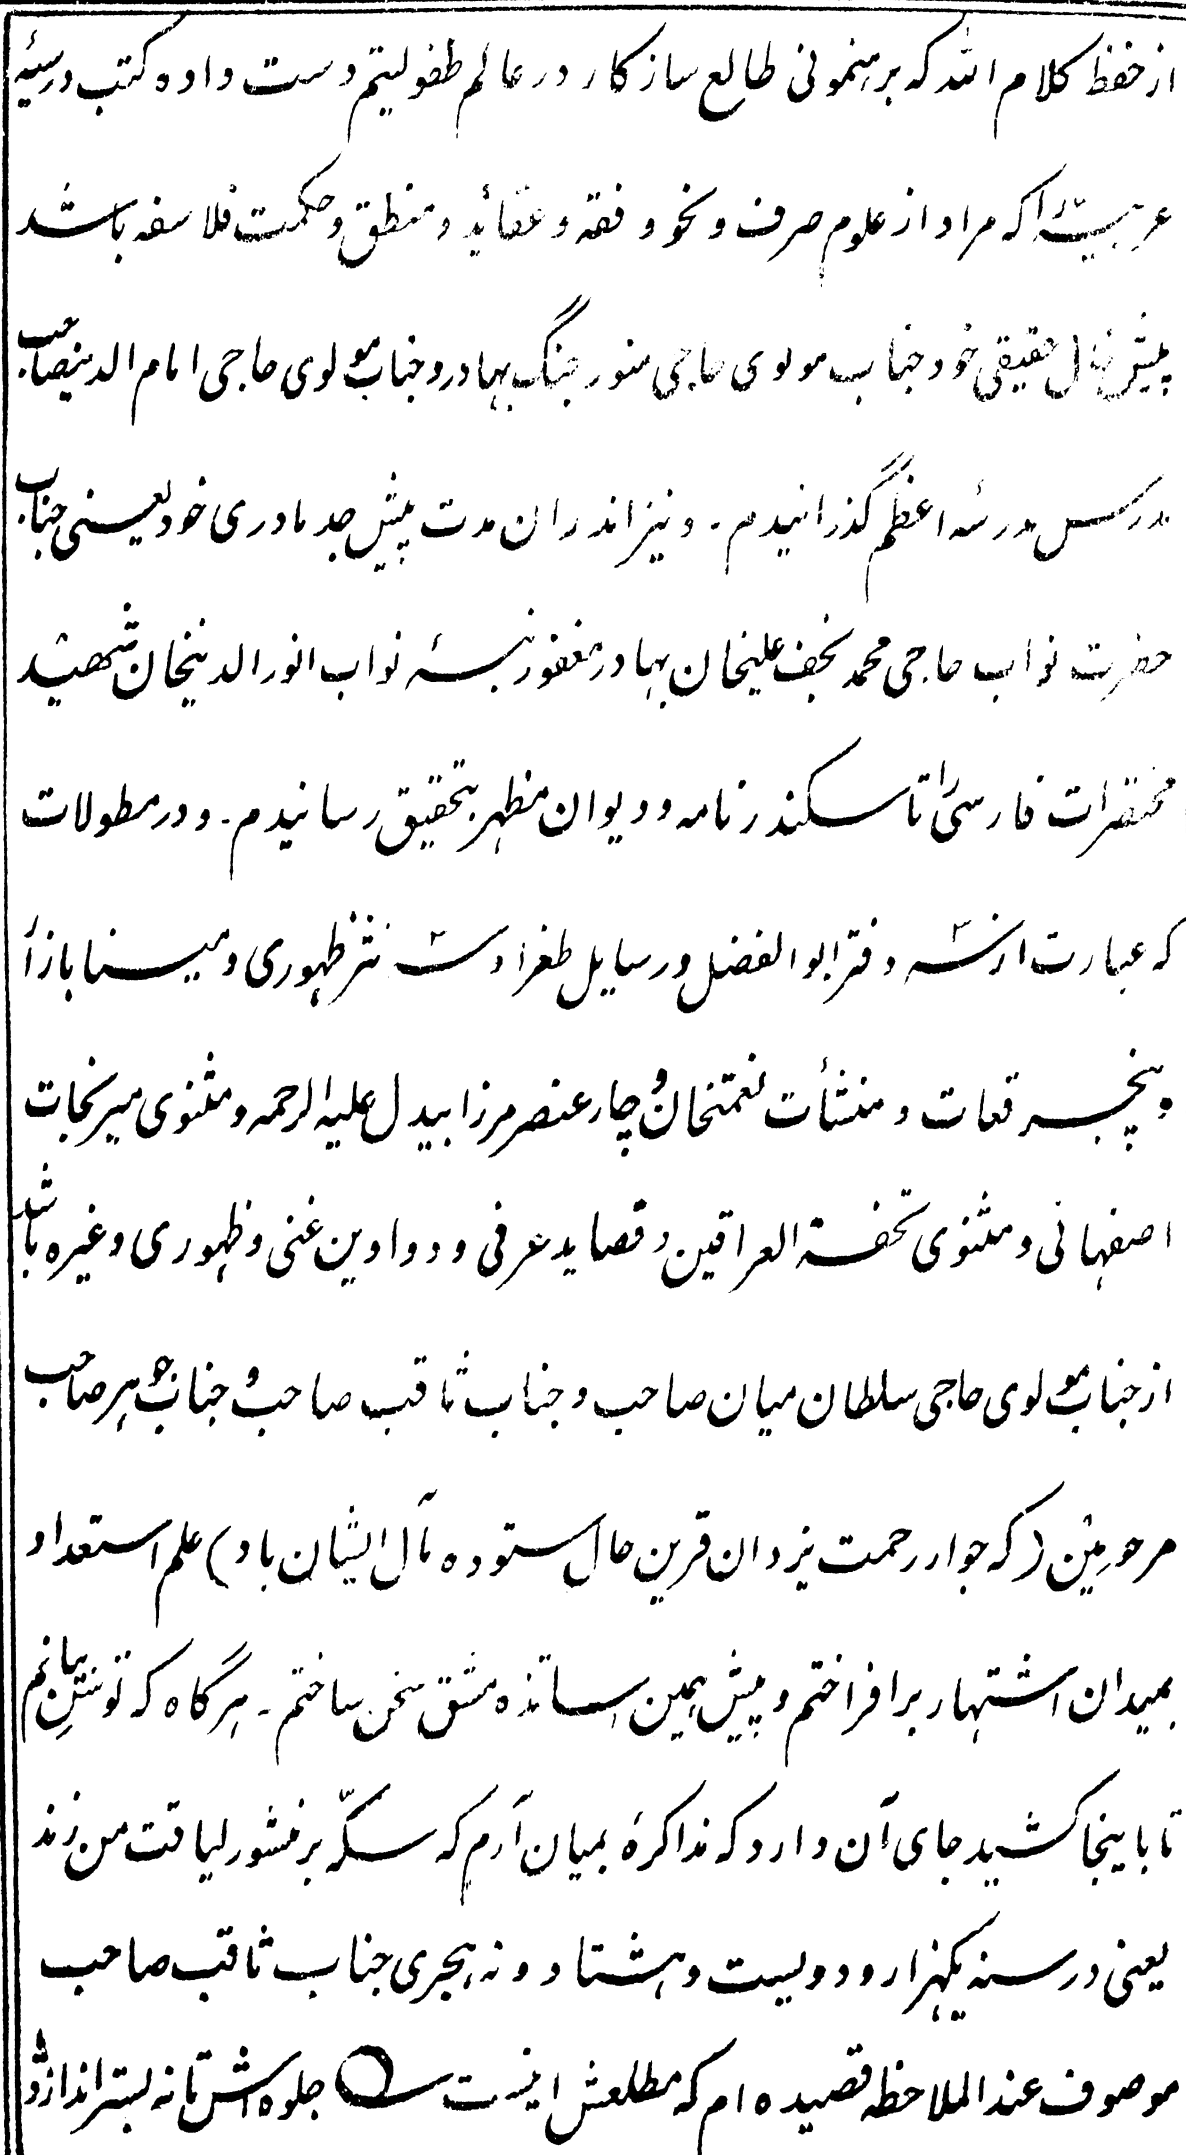 از حفظ کلام الله که برهنمونی طالع سازگار در عالم طفولیتم دست داده کتب درسیۀ
عربیه را که مراد از علوم صرف و نحو و فقه و عقائد و منطق و حکمت فلاسفه باشد
پیش خال حقیقی خود جناب مولوی حاجی منور جنگ بهادر و جناب مولوی حاجی امام الدینصاحب
مدرس مدرسۀ اعظم گذرانیدم ۔ و نیز اندران مدت پیش جد مادری خود یعنی جناب
حضرت نواب حاجی محمد نجف علیخان بهادر مغفور نبسۀ نواب انور الدینخان شهید
مختصرات فارسی را تا سکندر نامه و دیوان مظهر بتحقیق رسانیدم ۔ و در مطولات
که عبارت از سه دفتر ابو الفضل و رسایل طغرا و سه نثر ظهوری و مینا بازار
و پنجرقعات و منشأت نعمتخان و چار عنصر مرزا بیدل علیه الرحمه و مثنوی میر نجات
اصفهانی و مثنوی تحفة العراقین و قصاید عرفی و دواوین غنی و ظهوری و غیره باشد
از جناب مولوی حاجی سلطان میان صاحب و جناب ثاقب صاحب و جناب جوهر صاحب
مرحومین (که جوار رحمت یزدان قرین حال ستوده مآل ایشان باد) علم استعداد
بمیدان اشتهار برافراختم و پیش همین اساتذه مشق سخن ساختم ۔ هرگاه که توسن بیانم
تا باینجا کشید جای آن دارد که مذاکرۀ بمیان آرم که سکّه بر منشور لیاقت من زند
یعنی در سنه یکهزار و دویست و هشتاد و نه هجری جناب ثاقب صاحب
موصوف عند الملاحظه قصیده ام که مطلعش اینست جلوه اش تا نه بستر اندازد